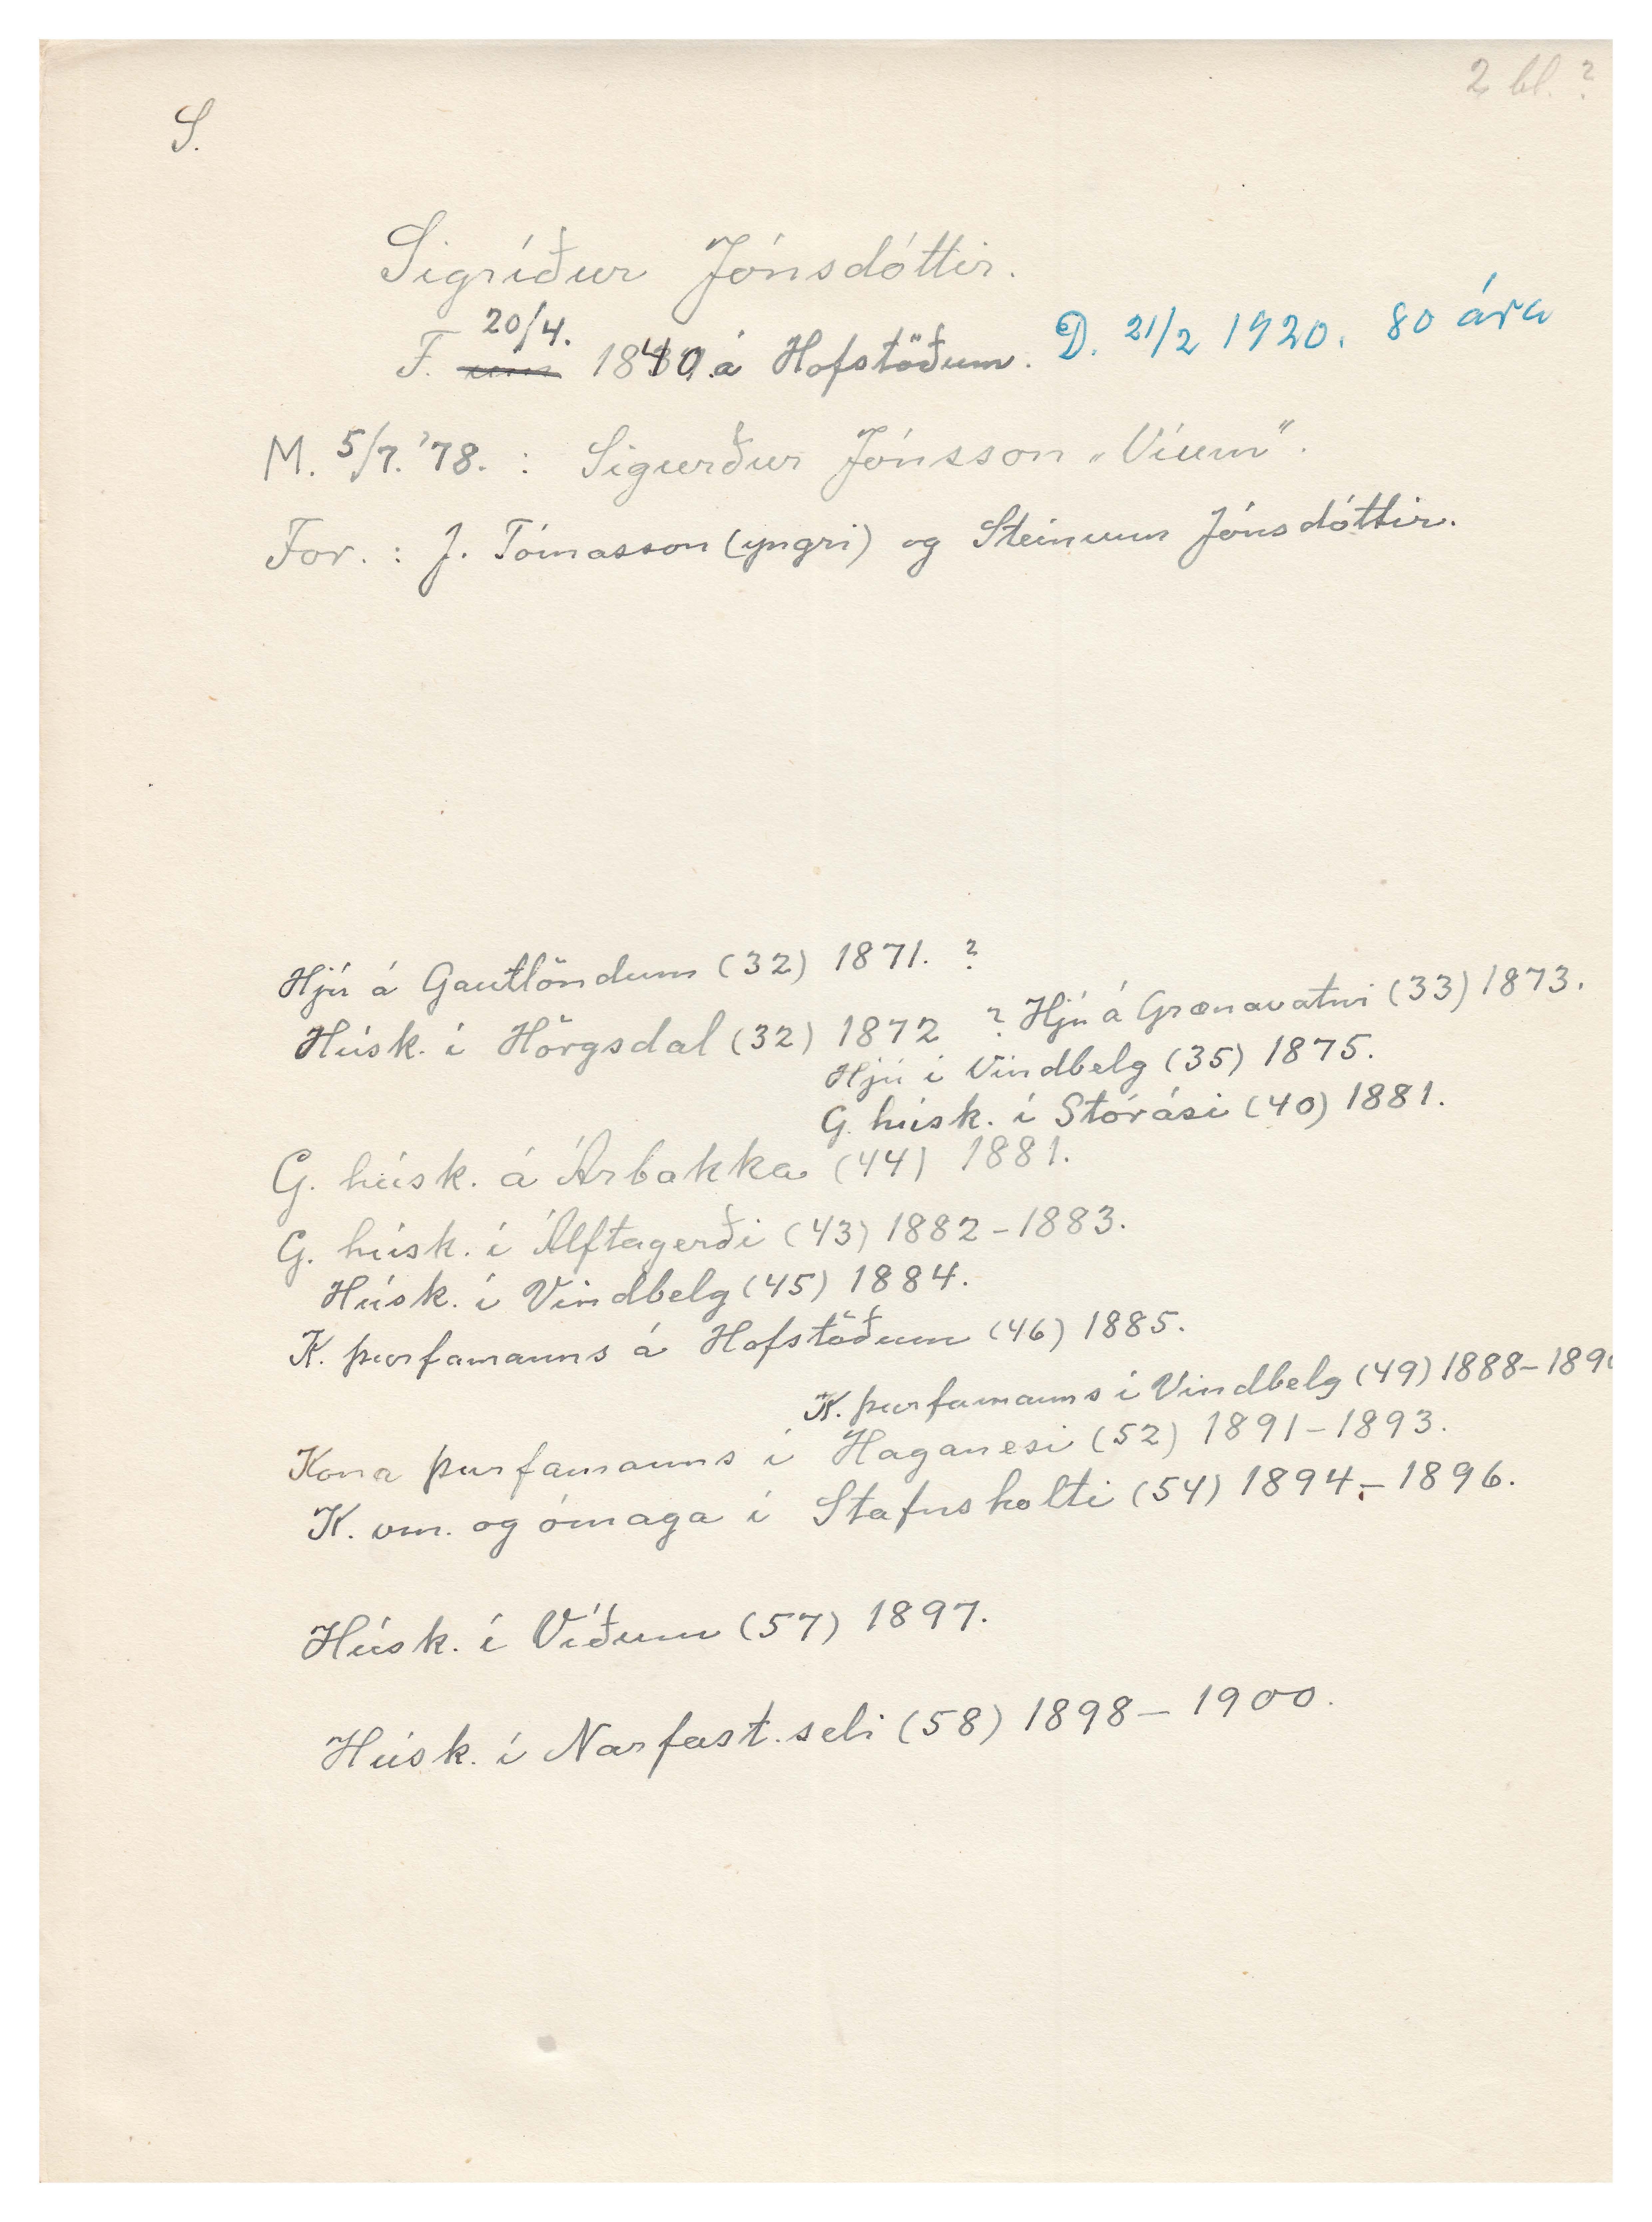 2 bl. ?
S.
Sigríður Jónsdóttir.
20/4.
F. um 1840 á Hofstöðum. D. 21/2 1920. 80 ára
M. 5/7. '78. : Sigurður Jónsson „Víum".
For. : J. Tómasson (yngri) og Steinunn Jónsdóttir.
Hjú á Gautlöndum (32) 1871. ?
Húsk. í Hörgsdal (32) 1872 ? Hjú á Grænavatni (33) 1873.
Hjú í Vindbelg (35) 1875.
G. húsk. í Stórási (40) 1881.
G. húsk. á Árbakka (44) 1881.
G. húsk. í Álftagerði (43) 1882-1883.
Húsk. í Vindbelg (45) 1884.
K. þurfamanns á Hofstöðum (46) 1885.
K. þurfamanns í Vindbelg (49) 1888-1890
Kona þurfamanns í Haganesi (52) 1891-1893.
K. vm. og ómaga í Stafnsholti (54) 1894-1896.
Húsk. í Víðum (57) 1897.
Húsk. í Narfast.seli (58) 1898-1900.